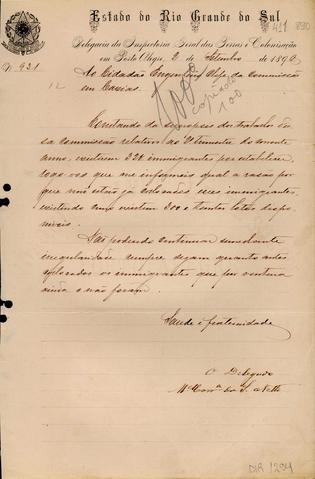 Estado do Rio Grande do Sul
Nº 421 890
Delegacia da Inspectoria Geral das Terras e Colonização
em Porto Alegre, 2 de Setembro de 1890
Nº 931
Ao Cidadão Engenheiro Chefe da Commissão
em Caxias
12
copiado
100
Constando da synopse dos trabalhos des-
sa Commissão relativa ao 2º trimestre do corrente
anno, existirem immigrantes por estabelecer,
rogo vos que me informeis qual a rasão por
que não estão já collocados esses immigrantes,
existindo como existem lotes dispo-
niveis.
Não podendo continuar semelhante
irregularidade cumpre sejam quanto antes
collocados os immigrantes que por ventura
ainda o não foram.
Saude e fraternidade
O Delegado
DIR 1294